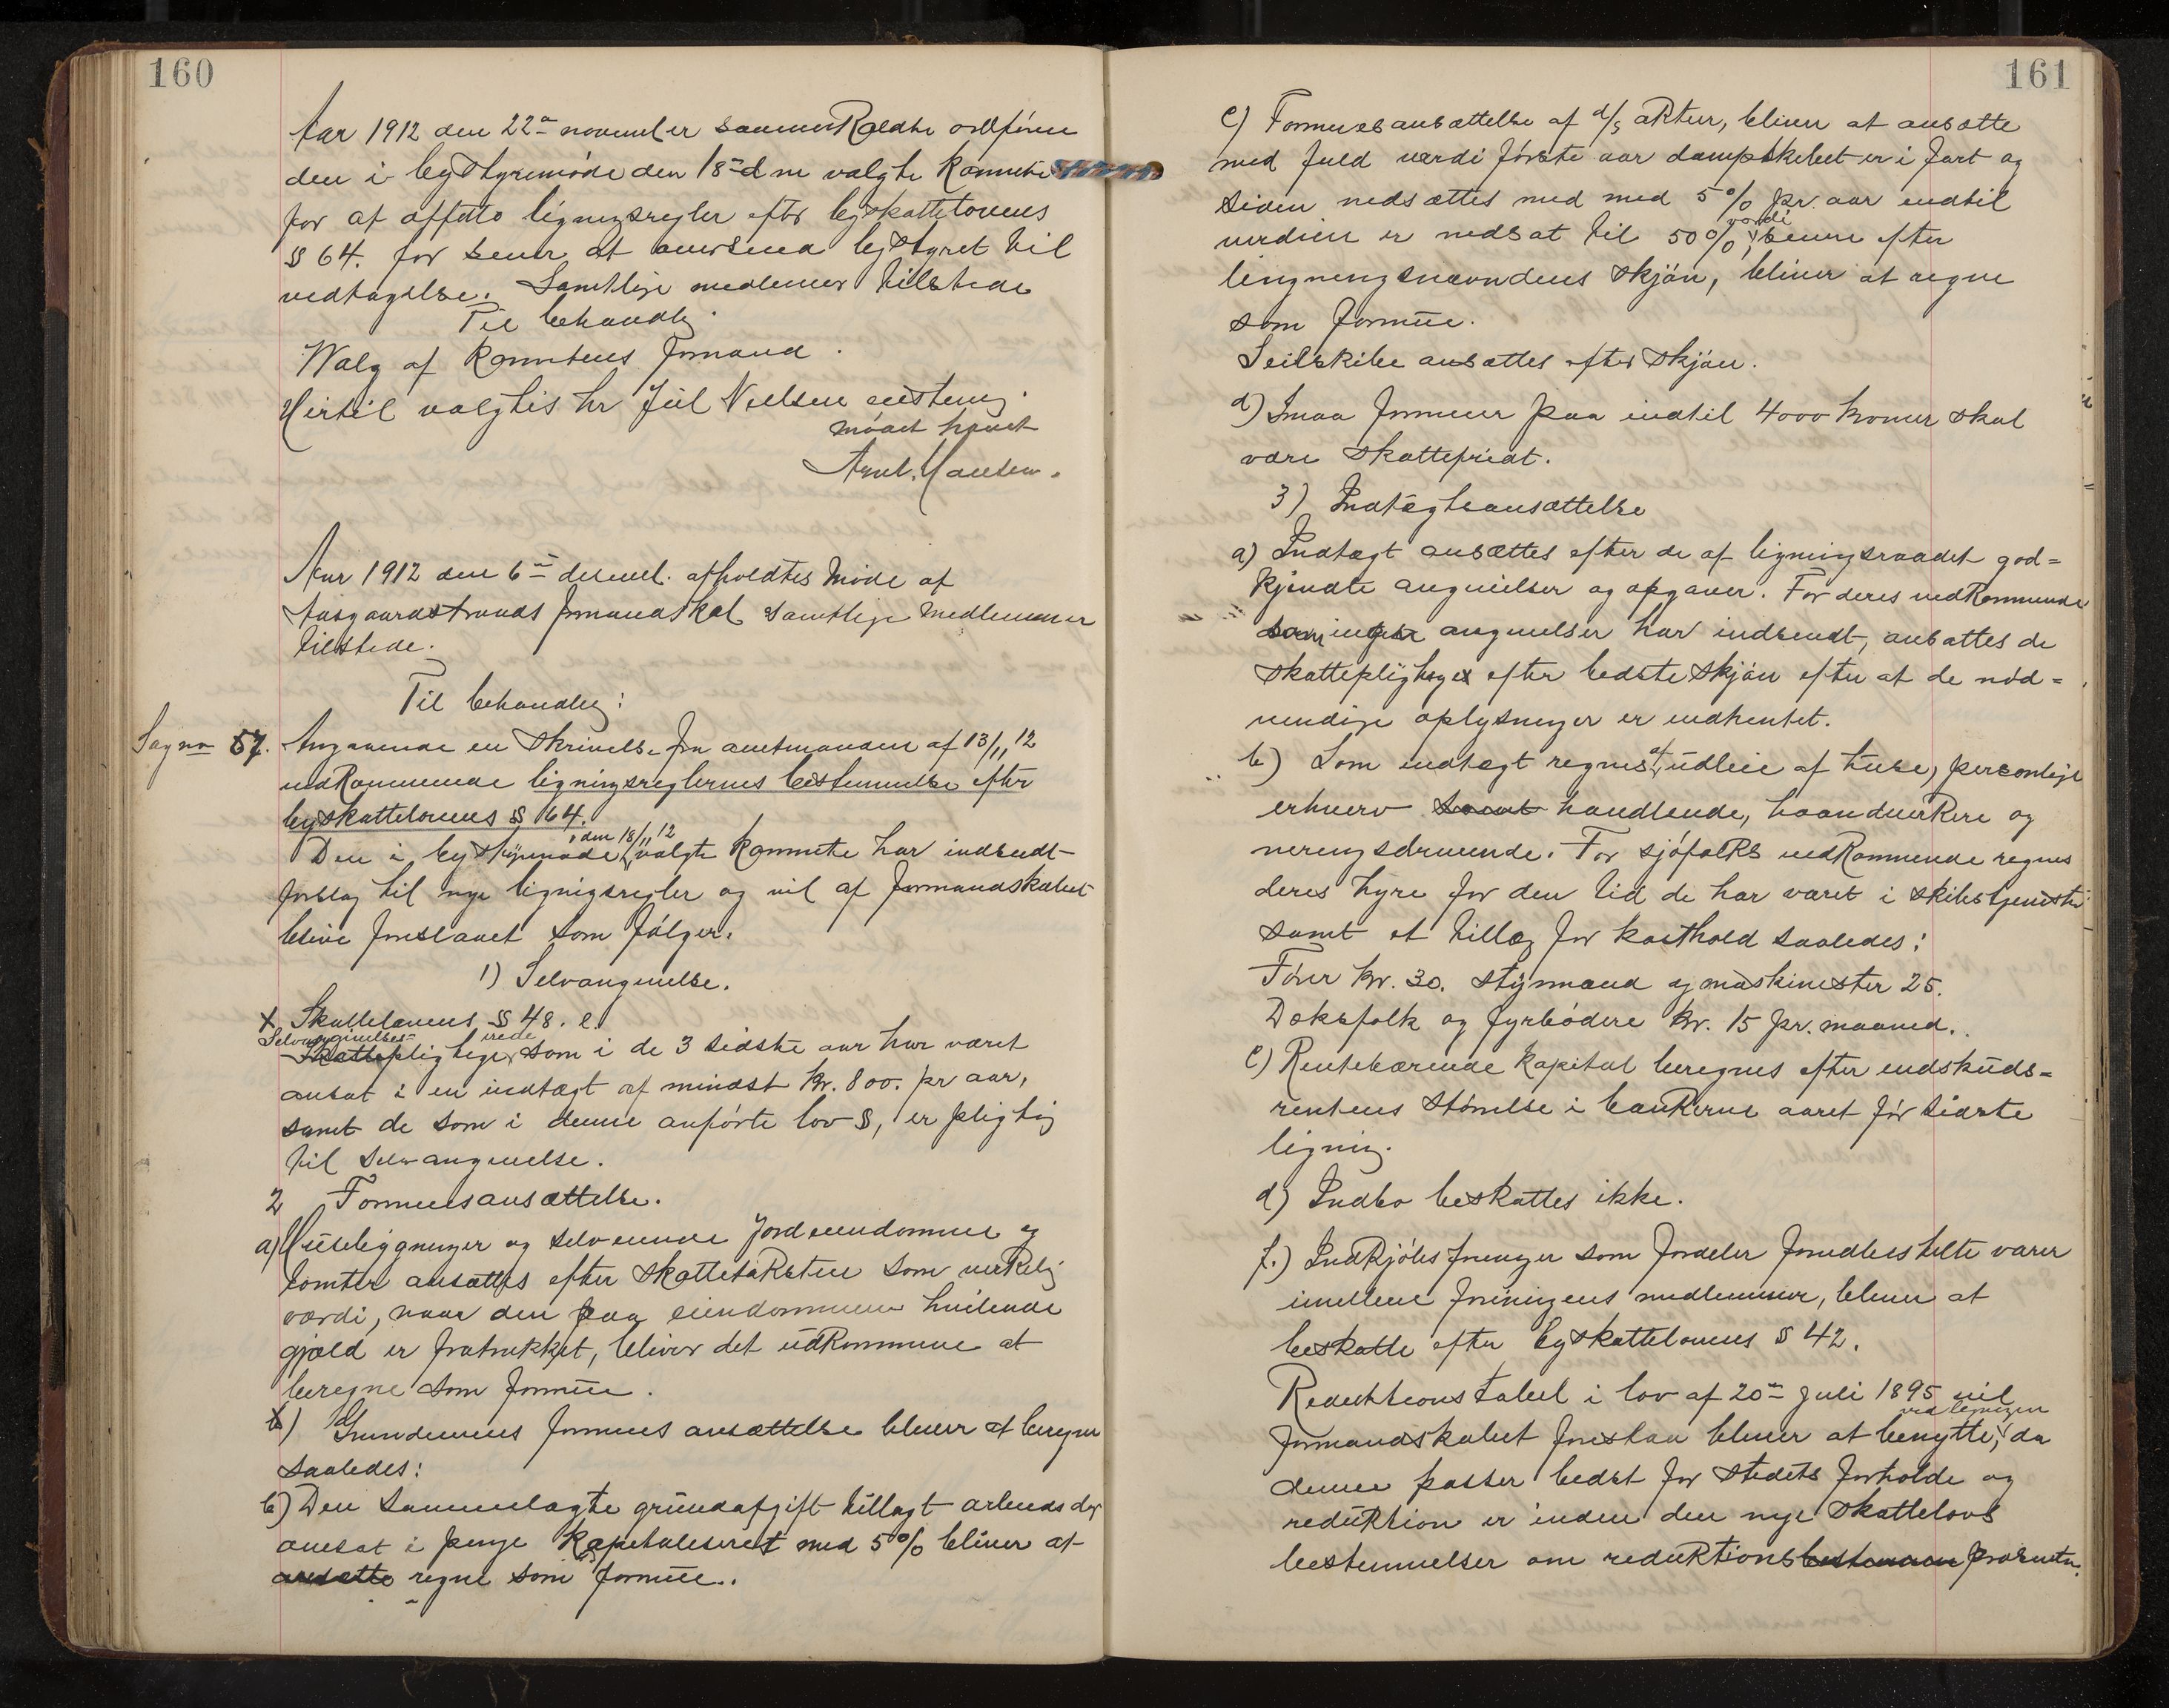 160
Aar 1912 den 22de november sammenkaldte ordføren
den i bystyremøde den 18de d m valgte komite
for at affatte ligningsregler efter byskattelovens
§ 64. for senere at oversend bystyret til
vedtagelse. Samtlige medlemer tilstede
Til behandlig.
Walg af komiteens formand.
Hertil valgtes hr Juil Nielsen enstemig.
mødet hævet
Arnt. Hansen.
Aar 1912 den 6te decemb. afholdtes møde af
Aasgaardstrands formandskab samtlige medlemmer
tilstede.
Til behandlig:
Sag no 57. Angaaende en skrivelse fra amtmanden af 13/11 12
vedkommende ligningsreglernes bestemmelse efter
byskattelovens § 64.
Den i bystyremøde, den 18/11 12 valgte kommite har indsendt
forslag til nye lignigsregler og vil af formandskabet
blive foreslaaet som følger.
1) Selvangivelse.
x Skattelovens § 48. e.
Selvangivelses=
Skattepligtige, som i de 3 sidste aar har været
ansat i en indtægt af mindst kr. 800. pr aar,
samt de som i denne anførte lov §, er pligtig
til selvangivelse.
2 Formuesansættelse.
a) Husebygninger og selveiende jordeiendomme og
tomter ansættes efter skattetaksten som virkelig
værdi, naar den paa eiendommen hvilende
gjæld er fratrukket, bliver det udkommne at
beregne som formue.
b) Grundeiernes formues ansættelse bliver at beregne
saaledes:
b) Den sammenlagte grundafgift tillagt arbeids dag
ansat i penge kapitaliseret med 5% bliver at
ansætte regne som formue.
161
c) Formuesansættelse af d/s aktier, bliver at ansætte
med fuld værdi første aar dampskibet er i fart og
siden nedsættes med med 5% pr. aar indtil
værdien er nedsat til 50%, værdi senere efter
lingningsnævndens skjøn, bliver at regne
som formue.
Seilskibe ansættes efter skjøn.
d) Smaa formuer paa indtil 4000 kroner skal
være skattefriat.
3) Indtægtsansættelse
a) Indtægt ansættes efter de af ligningsraadet god=
kjendte angivelser og opgaver. For deres vedkommende
som ingen angivelser har indsendt, ansættes de
skattepligtige efter bedste skjøn efter at de nød=
vendige oplysninger er indhentet.
b) Som indtægt regnes af udleie af huse, personlige
erhverv samt handlende, haandverkere og
neringsdrivende. For sjøfolks vedkommende regnes
deres hyre for den tid de har været i skibstjeneste
samt et tillæg for kosthold saaledes:
Fører kr. 30. styrmand og maskinister 25.
Dæksfolk og fyrbødere kr. 15 pr. maaned.
c) Rentebærende kapital beregnes efter indskuds=
rentens størrelse i bankerne aaret før sidste
ligning.
d) Indbo beskattes ikke.
f.) Indkjøbsforeninger som fordeler forudbestilte varer
imellem foreningens medlemmer, bliver at
beskatte efter byskattelovens § 42.
Reduktionstabel i lov af 20de juli 1895 vil
formandskabet foreslaa bliver at benytte, ved ligningen da
denne passer bedst for stedets forholde og
reduktion er inden den nye skattelovs
bestemmelser om reduktionsbestemmen prosenter.